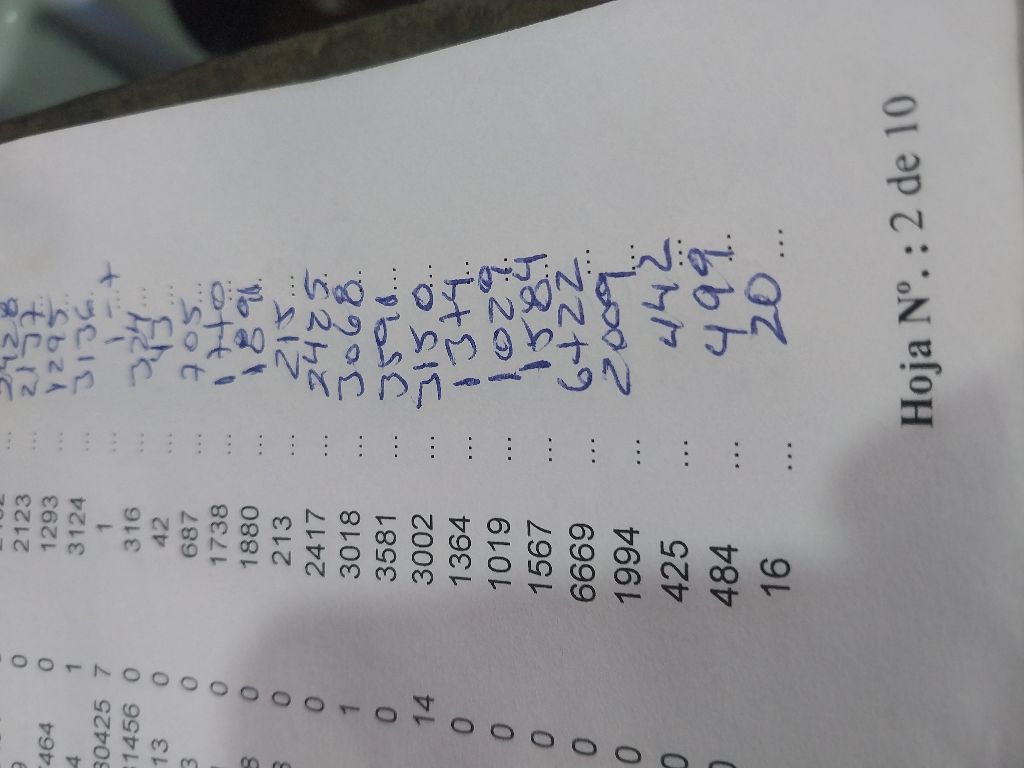 9 0 2123 ... 2137 ...
7464 0 1293 ... 1295 ...
4 1 3124 ... 3136 ...
30425 7 1 ... 1 ...
31456 0 316 ... 324 ...
13 0 42 ... 43 ...
3 0 687 ... 705 ...
0 1738 ... 1740 ...
8 0 1880 ... 1891 ...
8 0 213 ... 215 ...
0 2417 ... 2425 ...
1 3018 ... 3068 ...
0 3581 ... 3591 ...
14 3002 ... 3150 ...
0 1364 ... 1374 ...
0 1019 ... 1029 ...
0 1567 ... 1584 ...
0 6669 ... 6722 ...
0 1994 ... 2009 ...
0 425 ... 442 ...
0 484 ... 499 ...
16 ... 20 ...
Hoja Nº. : 2 de 10